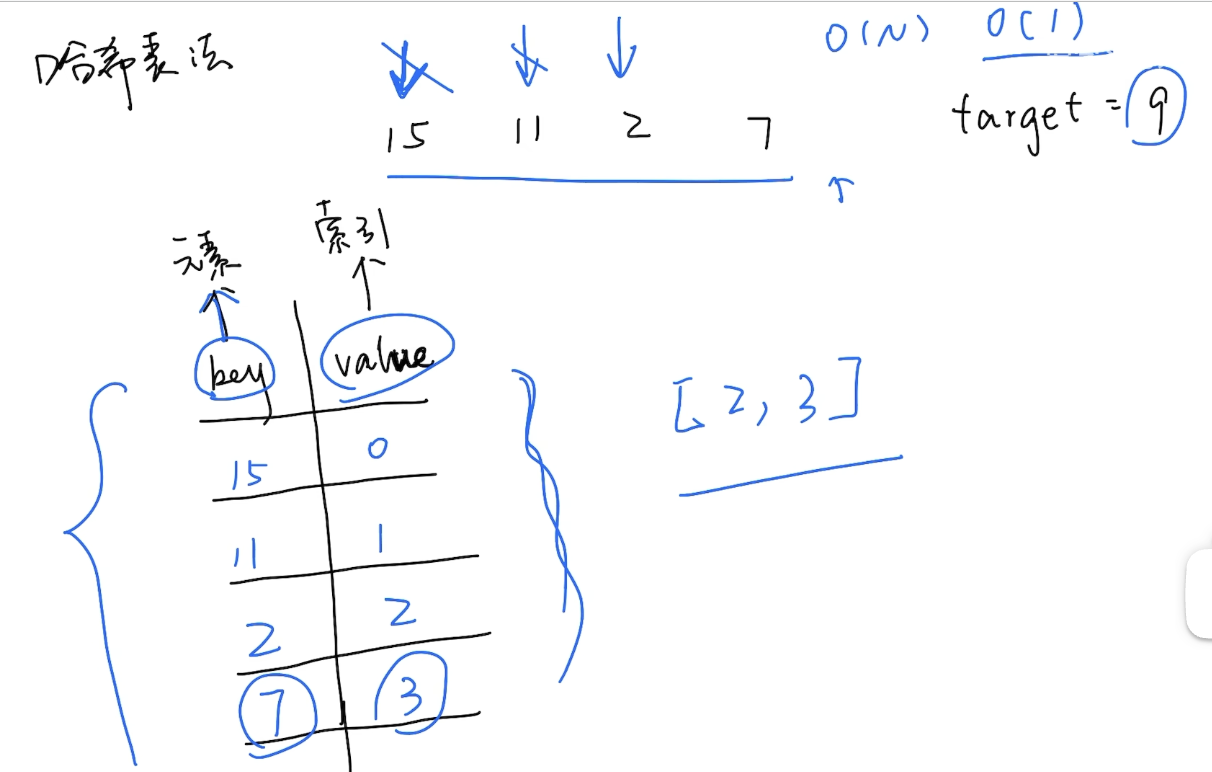 哈希表法
O(N) O(1)
15 11 2 7
target = 9
元素 索引
key value
15 0
11 1
2 2
7 3
[2, 3]